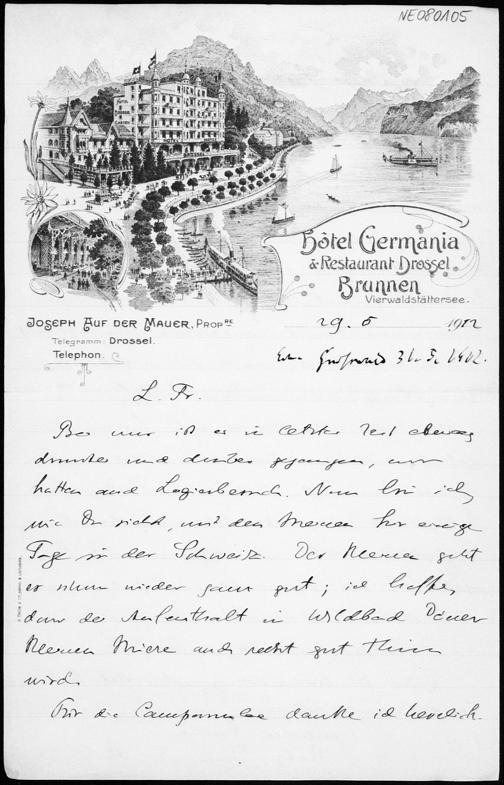 NE080105
Hôtel Germania
& Restaurant Drossel
Brunnen
Vierwaldstättersee.
JOSEPH AUF DER MAUER, PROPRE
Telegramm: Drossel.
Telephon.
29. 5 1912
31. 5. 1912.
L. Fr.
Bei mir ist es in letzter Zeit
drunter und drüber gegangen, wir
hatten auch Logierbesuch. Nun bin ich,
wie Du siehst, mit den Meinen für einige
Tage in der Schweiz. Der Kleinen geht
es schon wieder ganz gut; ich hoffe,
dass der Aufenthalt in Wildbad Deiner
kleinen auch recht gut thun
wird.
Für die Campanulae danke ich herzlich.